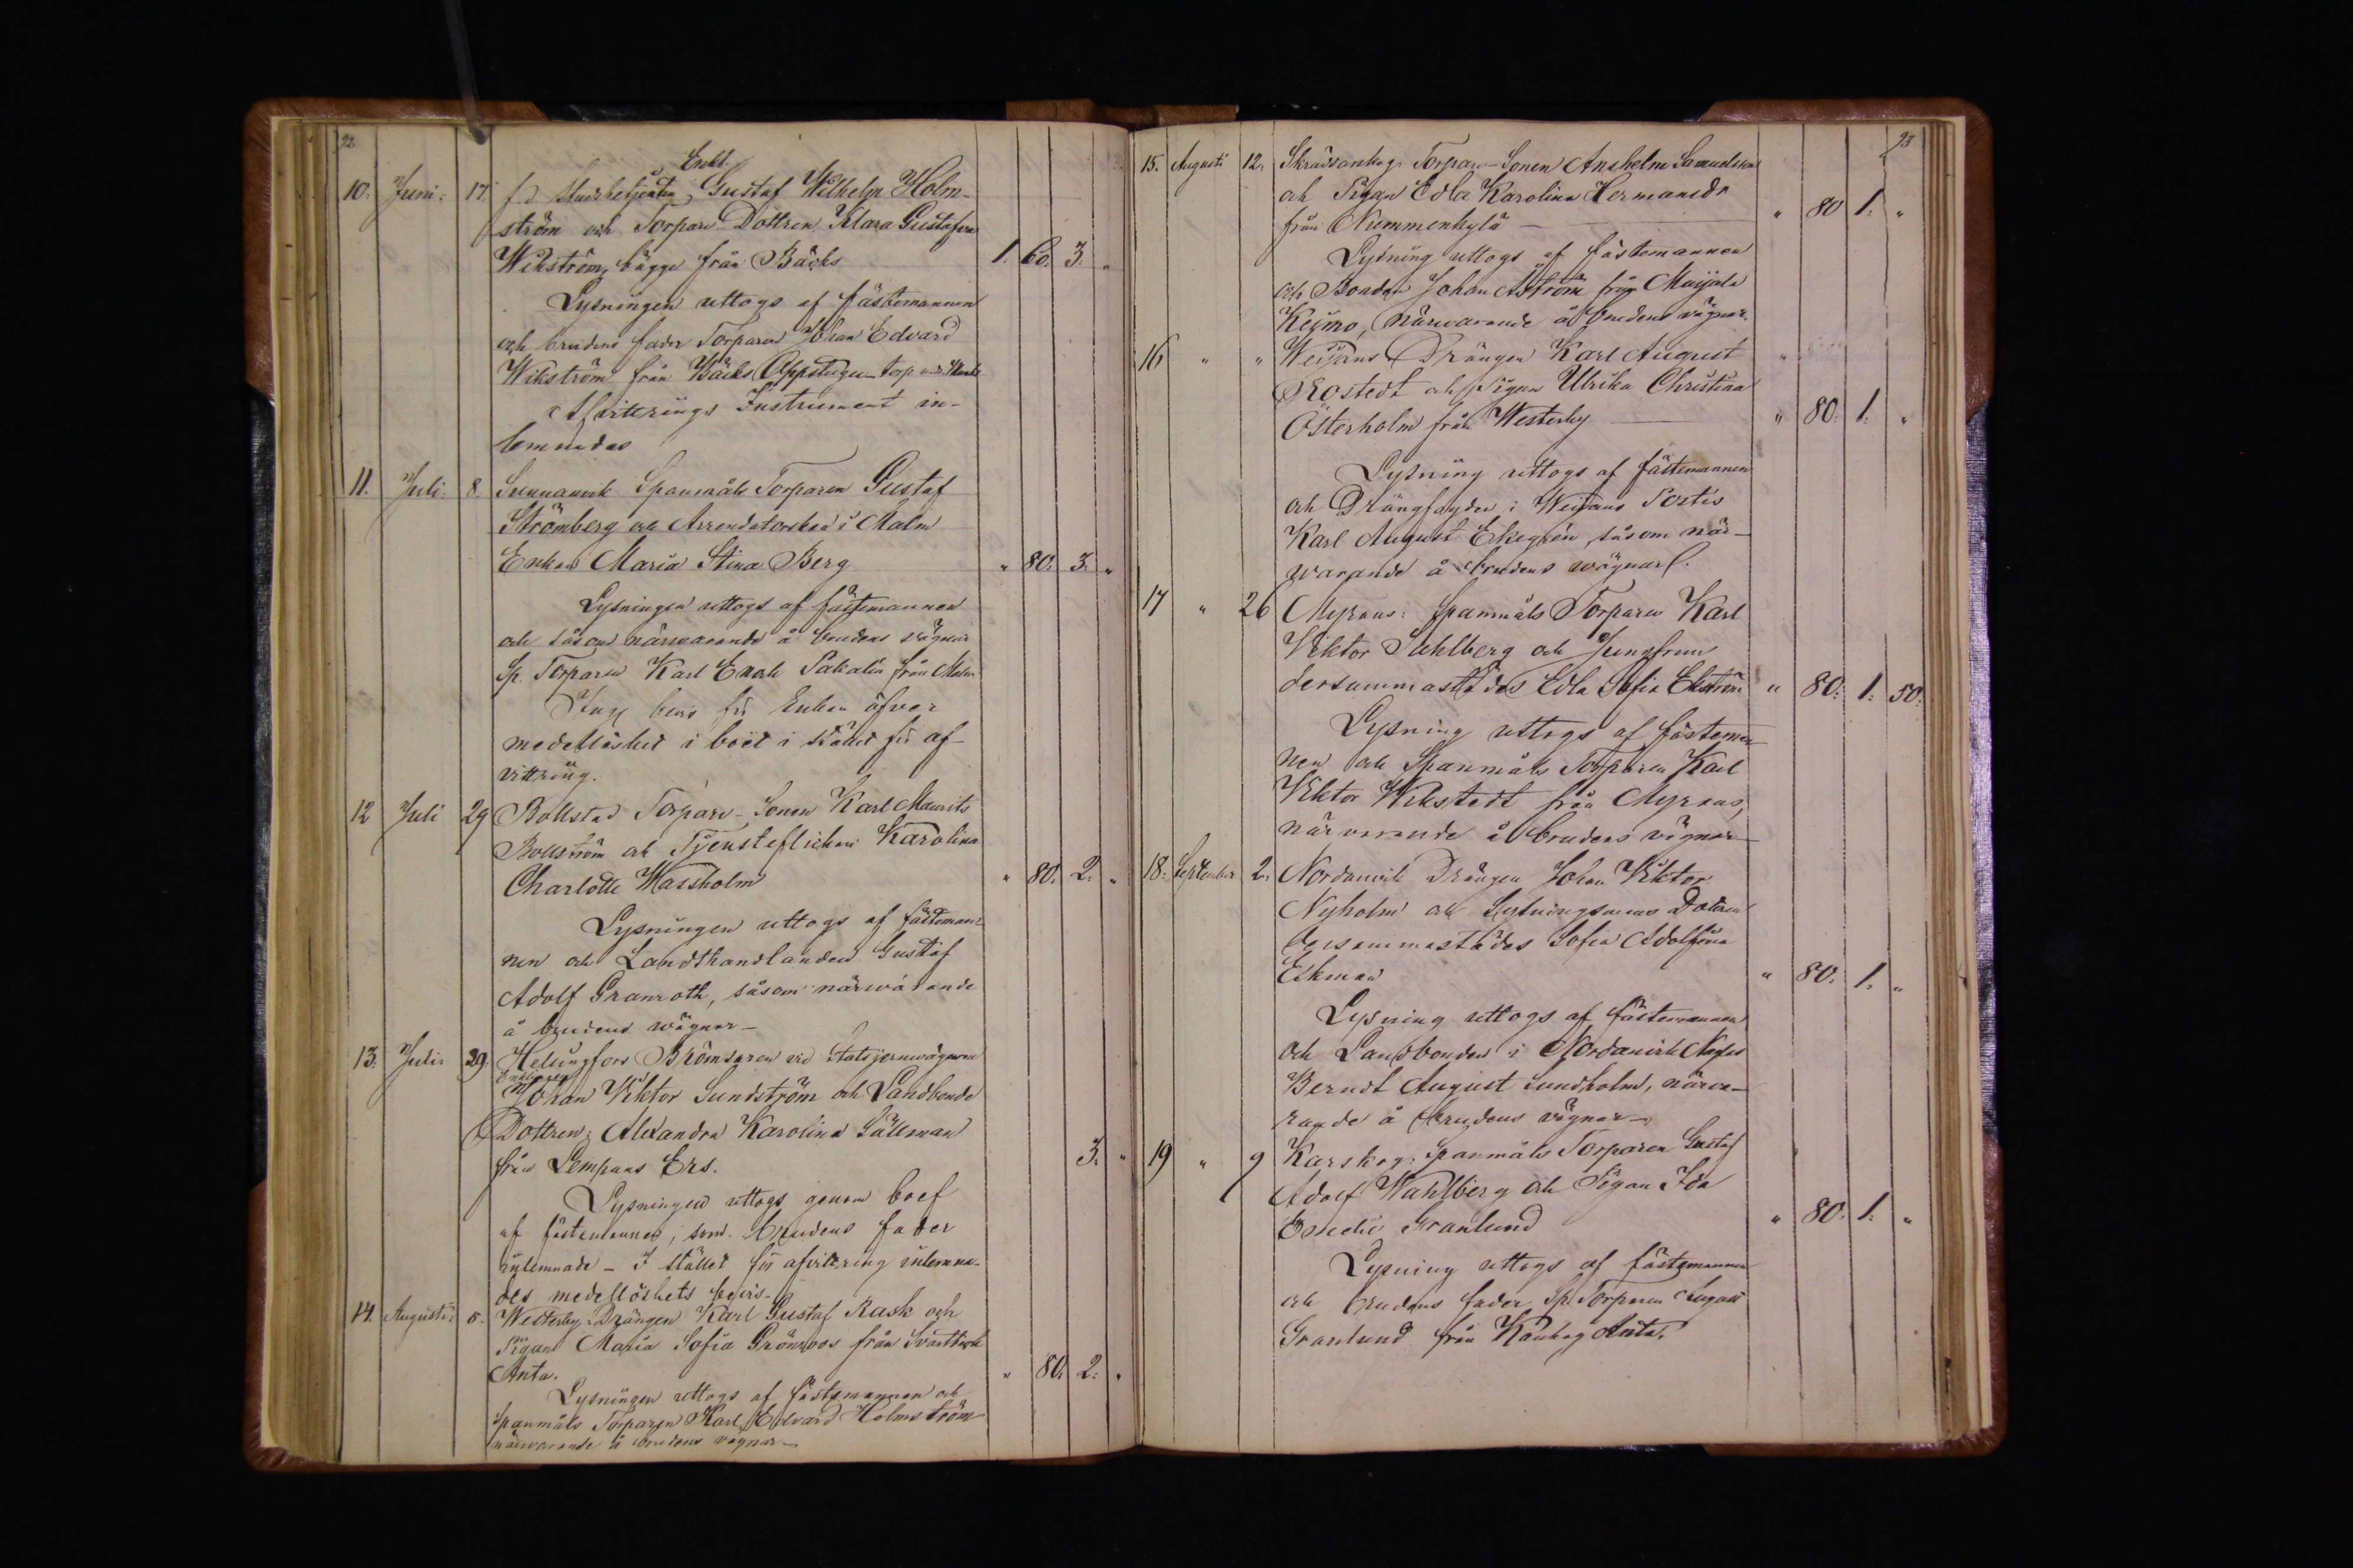 22
Enkl.
10. Juni 17. f.d. Gustaf Wilhelm Holm-
ström och Torpare Dottren Klara Gustafva
Wikström, bägge från Bäcks 1. 60. 3. "
Lysningen uttogs af fästemannen
och brudens fader Torparen Johan Edvard
Wikström från Bäcks Oppstugu torp
Afvittrings Instrument in-
lemnades
11. Juli 8. Sunnanvik Spanmåls Torparen Gustaf
Strömberg och i Malm
Enkan Maria Stina Berg " 80. 3. "
Lysningen uttogs af fästemannen
och såsom närwarande å brudens vägnar
Sp. Torparen Karl Enok från Malm
bevis för Enkan öfver
medellöshet i boet i stället för af-
vittring.
12 Juli 29 Bollstad Torpare-Sonen Karl Maurits
Bollström och Tjensteflickan Karolina
Charlotte Wassholm " 80. 2. "
Lysningen uttogs af fästeman-
nen och Landthandlanden Gustaf
Adolf Granroth, såsom närwarande
å brudens wägnar –
13. Julii 29. Helsingfors Brömsaren vid Statsjernvägarne
Enklingen
Johan Viktor Sundström och Landbonde
Dottren: Alexandra Karolina Sällman
från Lempans Ers. 3. "
Lysningen uttogs genom bref
af fästemannen, som brudens fader
inlemnade – I stället för afvittring inlemna-
des medellöshets bevis.
14. Augusti 5. Westerby Drängen Karl Gustaf Rask och
Pigan Maria Sofia Grönroos från
Anta. " 80. 2. "
Lysningen uttogs af fästemannen och
Spanmåls Torparen Karl Edvard Holmström
närwarande å brudens vägnar –
23
15. Augusti 12. Skräddarskog Torpare-Sonen Anshelm Samuelsson
och Pigan Edla Karolina Hermansdr
från Nummenkylä – " 80 1. "
Lysning uttogs af fästemannen
och Bonden Johan Åström från Maijala
Keimo, närwarande å brudens vägnar.
16 " " Weijans Drängen Karl August
Rostedt och Pigan Ulrika Christina
Österholm från Westerby " 80. 1. "
Lysning uttogs af fästemannen
och Drängfogden i Weijans Portis
Karl August Ekegrén, såsom när-
warande å brudens wägnar.
17 " 26 Myrans: Spanmåls Torparen Karl
Viktor Sahlberg och Jungfrun
dersammastädes Edla Sofia Ekström " 80. 1. 50.
Lysning uttogs af fästeman-
nen och Spanmåls Torparen Karl
Viktor Wikstedt från Myrans,
närvarande å brudens vägnar
18. September 2. Nordanvik Drängen Johan Viktor
Nyholm och Dottren
dersammastädes Sofia Adolfina
Eskman " 80. 1. "
Lysning uttogs af fästemannen
och Landbonden i Nordanvik
Berndt August Sundholm, närva-
rande å brudens vägnar –
19 " 9 Karskog: Spanmåls Torparen Gustaf
Adolf Wahlberg och Pigan Ida
Granlund " 80. 1. "
Lysning uttogs af fästemannen
och brudens fader Sp. Torparen August
Granlund från Anta.